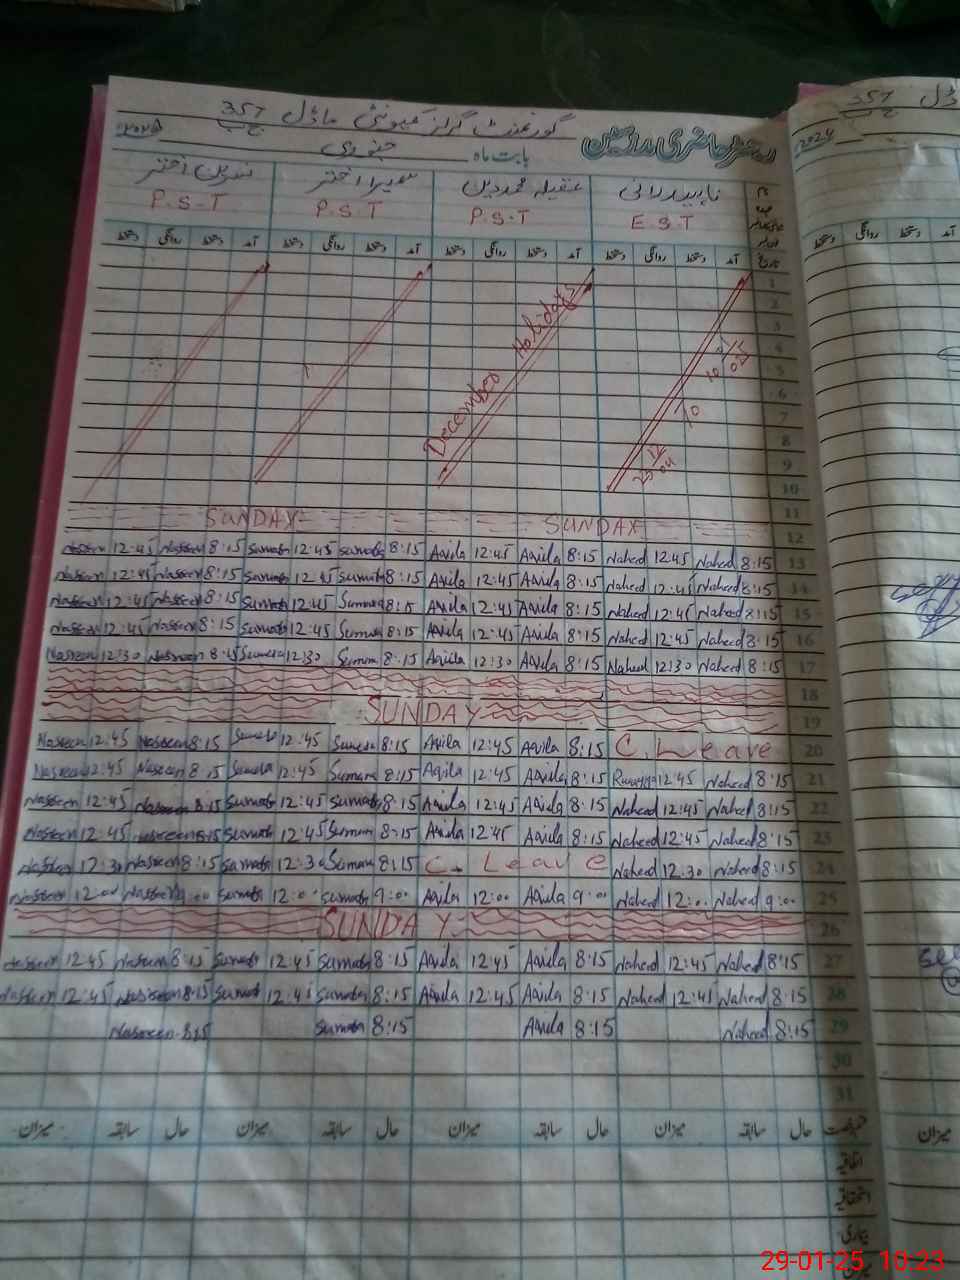 گورنمنٹ گرلز کمیونٹی ماڈل 357 ج ب
رجسٹر حاضری مدرسین بابت ماہ جنوری ۲۰۲۵
ناہید رانی عقیلہ محمد دین سمیرا اختر نسرین اختر
E.S.T P.S.T P.S.T P.S.T
تاریخ آمد دستخط روانگی دستخط آمد دستخط روانگی دستخط آمد دستخط روانگی دستخط آمد دستخط روانگی دستخط
1
2
3
4
5
6
7
8
9
10
December Holidays
11
SUNDAY SUNDAY 12
Nasreen 12:45 Nasreen 8:15 Sumaira 12:45 Sumaira 8:15 Aqila 12:45 Aqila 8:15 Naheed 12:45 Naheed 8:15 13
Nasreen 12:45 Nasreen 8:15 Sumaira 12:45 Sumaira 8:15 Aqila 12:45 Aqila 8:15 Naheed 12:45 Naheed 8:15 14
Nasreen 12:45 Nasreen 8:15 Sumaira 12:45 Sumaira 8:15 Aqila 12:45 Aqila 8:15 Naheed 12:45 Naheed 8:15 15
Nasreen 12:45 Nasreen 8:15 Sumaira 12:45 Sumaira 8:15 Aqila 12:45 Aqila 8:15 Naheed 12:45 Naheed 8:15 16
Nasreen 12:30 Nasreen 8:15 Sumaira 12:30 Sumaira 8:15 Aqila 12:30 Aqila 8:15 Naheed 12:30 Naheed 8:15 17
18
SUNDAY 19
Nasreen 12:45 Nasreen 8:15 Sumaira 12:45 Sumaira 8:15 Aqila 12:45 Aqila 8:15 C. Leave 20
Nasreen 12:45 Nasreen 8:15 Sumaira 12:45 Sumaira 8:15 Aqila 12:45 Aqila 8:15 12:45 Naheed 8:15 21
Nasreen 12:45 Nasreen 8:15 Sumaira 12:45 Sumaira 8:15 Aqila 12:45 Aqila 8:15 Naheed 12:45 Naheed 8:15 22
Nasreen 12:45 Nasreen 8:15 Sumaira 12:45 Sumaira 8:15 Aqila 12:45 Aqila 8:15 Naheed 12:45 Naheed 8:15 23
Nasreen 12:30 Nasreen 8:15 Sumaira 12:30 Sumaira 8:15 C. Leave Naheed 12:30 Naheed 8:15 24
Nasreen 12:00 Nasreen 9:00 Sumaira 12:00 Sumaira 9:00 Aqila 12:00 Aqila 9:00 Naheed 12:00 Naheed 9:00 25
SUNDAY 26
Nasreen 12:45 Nasreen 8:15 Sumaira 12:45 Sumaira 8:15 Aqila 12:45 Aqila 8:15 Naheed 12:45 Naheed 8:15 27
Nasreen 12:45 Nasreen 8:15 Sumaira 12:45 Sumaira 8:15 Aqila 12:45 Aqila 8:15 Naheed 12:45 Naheed 8:15 28
Nasreen 8:15 Sumaira 8:15 Aqila 8:15 Naheed 8:15 29
30
31
رخصت حال سابقہ میزان حال سابقہ میزان حال سابقہ میزان حال سابقہ میزان
اتفاقیہ
استحقاقیہ
بیماری
میزان
ماڈل 357 ج ب
2024
آمد دستخط روانگی دستخط
میزان
29-01-25 10:23